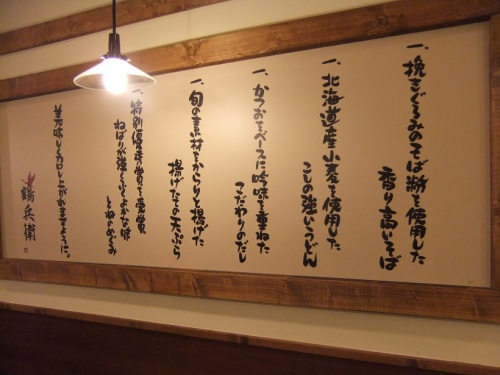 一、挽きぐるみのそば粉を使用した
香り高いそば
一、北海道産小麦を使用した
こしの強いうどん
一、かつおをベースに吟味を重ねた
こだわりのだし
一、旬の素材をからりと揚げた
揚げたての天ぷら
一、特別優等賞を受賞
ねばりが強くふくよかな味
とねのめぐみ
美味しく召し上がれますように。
鶴兵衛